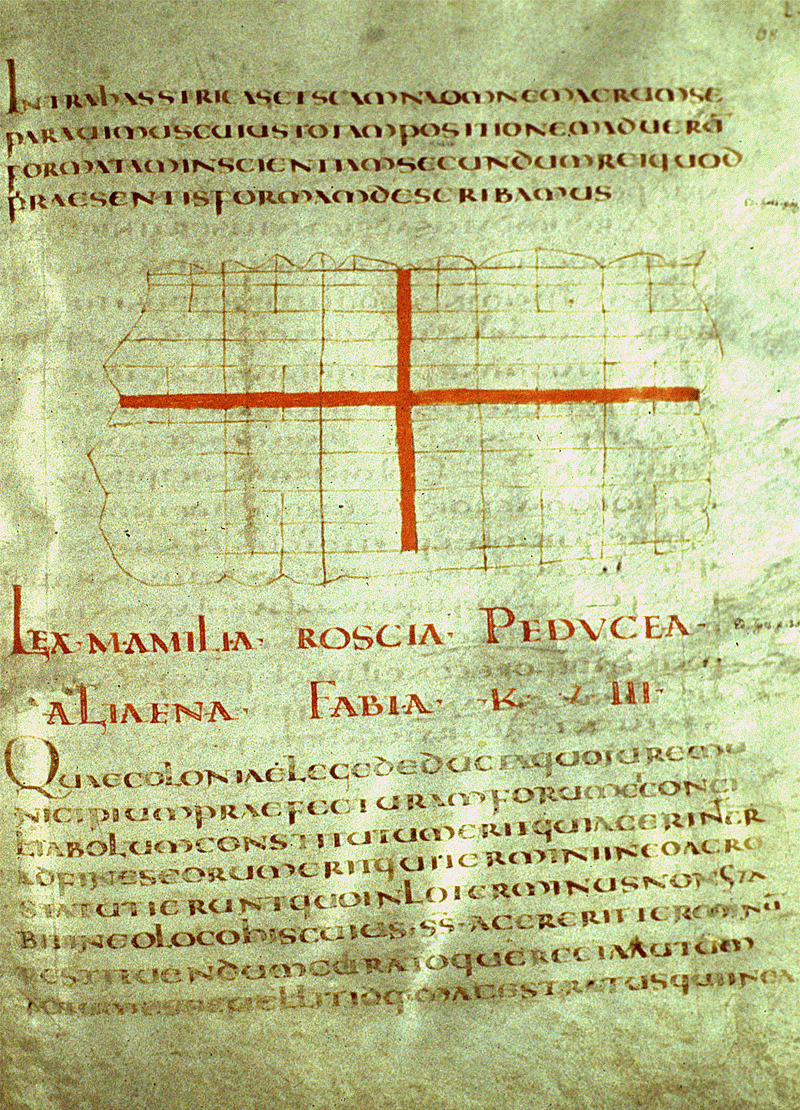 INTRAHASSTRICASETSCAMNAOMNEMAGRUMSE
PARAUIMUSCUIUSTOTAMPOSITIONEMADUERĀ
FORMATAMINSCIENTIAMSECUNDUMREIQUOD
PRAESENTISFORMAMDESCRIBAMUS
LEX·MAMILIA· ROSCIA· PEDVCEA·
ALIAENA· FABIA· K· L III·
QUAECOLONIAELEGEDEDUCTAQUOIUREMU
NICIPIUMPRAEFECTURAMFORUMCONCI
LIABOLUMCONSTITUTUMERITQUIAGERINTR
ADFINESEORUMERITQUITERMINIINEOAGRO
STATUTIERUNTQUOINLOTERMINUSNONSTA
BITINEOLOCOHISCUIUS·SS·AGERERITTERMINU
RESTITUENDUMCURATOQUERECTAAUTUM